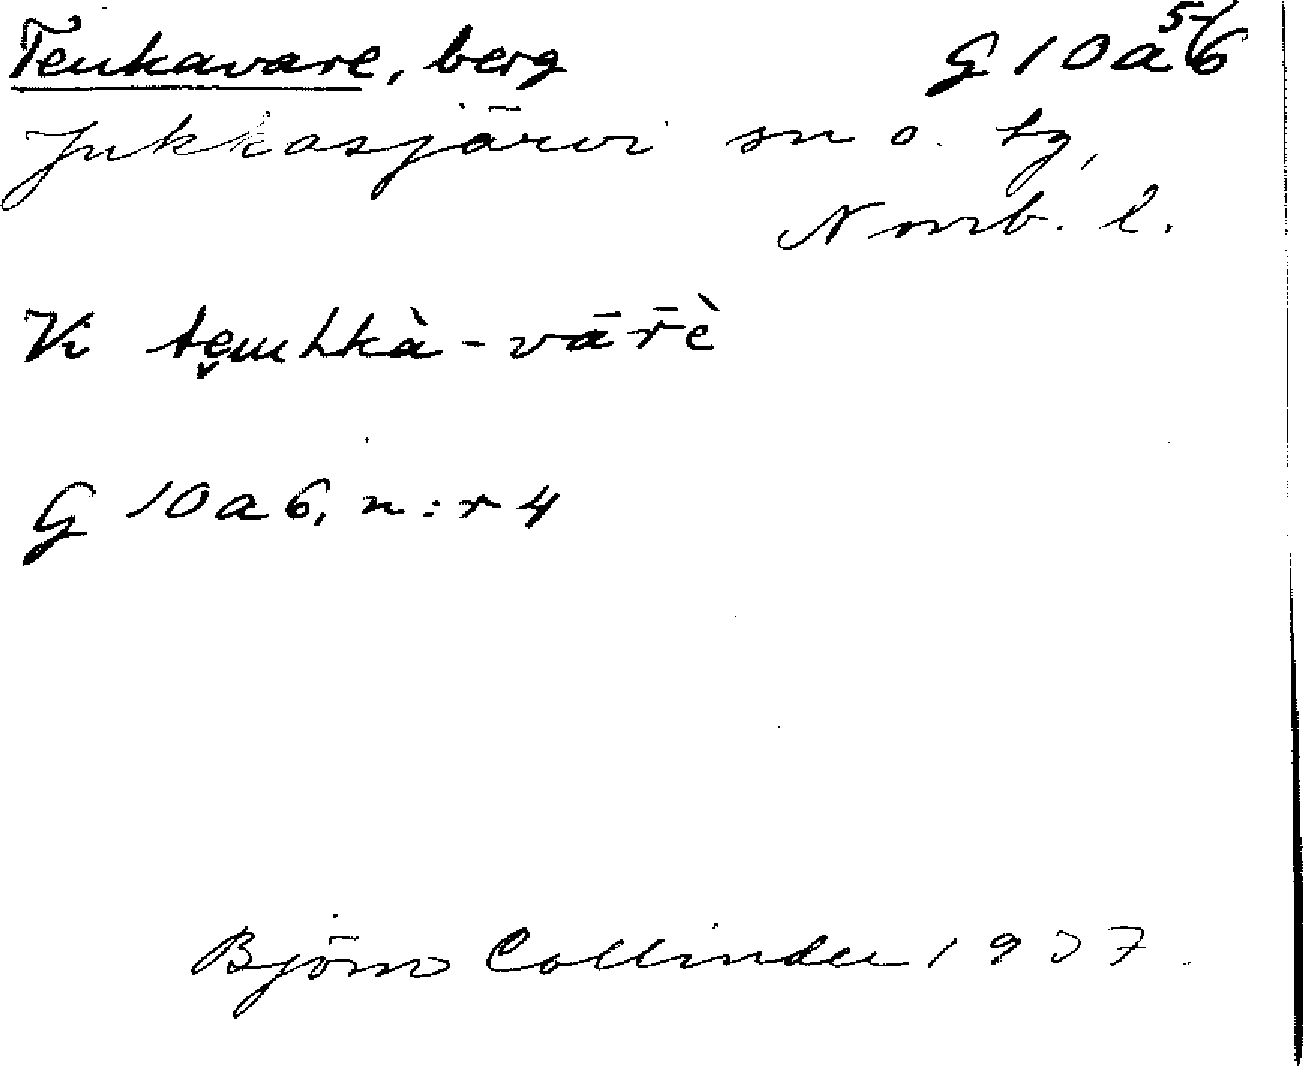 Teukavare, berg G 10 a 5/6
Jukkasjärvi sn o. tg,
Norrb. l.
Vi tęuhkà-vār̄è
G 10 a 6, n:r 4
Björn Collinder 1937.